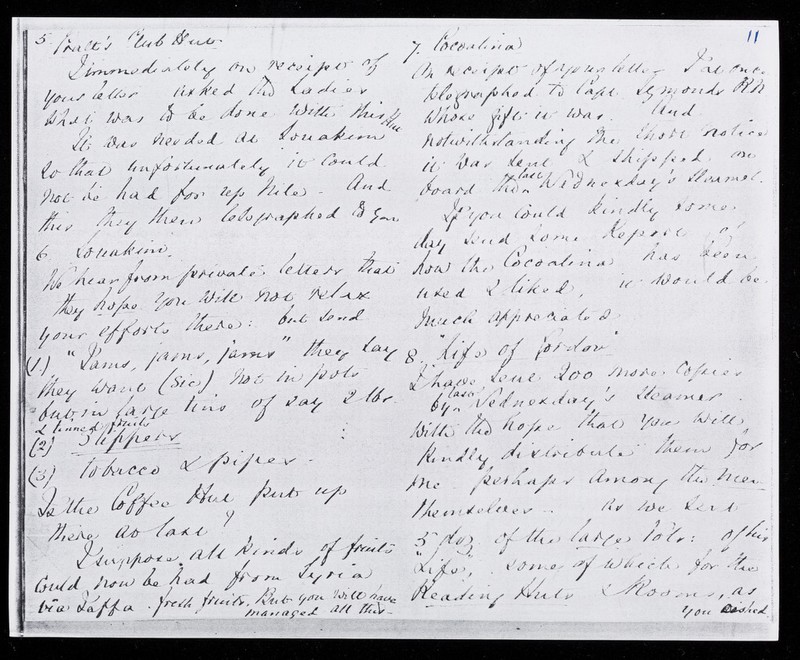 5. Pratt's Club Hut
I immediately on receipt of
your letter asked the Ladies
what was to be done with this Hut
It was needed at Souakim
so that unfortunately it could
not be had for up Nile - And
this they then telegraphed to you
6. Souakim.
We hear from private letters that
they hope you will not relax
your efforts there: but send
(1) "Jams, jams, jams" they say
they want (sic) not in pots
but in large tins of say 2 lbs.
& tinned fruits
(2) Slippers
(3) Tobacco & pipes -
Is the Coffee Hut put up
there at last?
I suppose all kinds of fruits
could now be had from Syria
via Jaffa. fresh fruits. But you will have
managed all this.
11
7. Cocoatina
On receipt of your letter I at once
telegraphed to Capt. Symonds RN
whose gift it was. And
notwithstanding the short notice
it was sent & shipped on
board then last Wednesday's steamer.
If you could kindly some
day send some Report of
how the Cocoatina has been
used & liked, it would be
much appreciated
8. "Life of Gordon"
I have sent 200 more copies
by last Wednesday's Steamer -
with the hope that you will
kindly distribute them for
me - perhaps among the men
themselves - as we sent
5 doz. of the large :  of his
"Life", some of which for the
Reading Huts & Rooms, as
you wished.